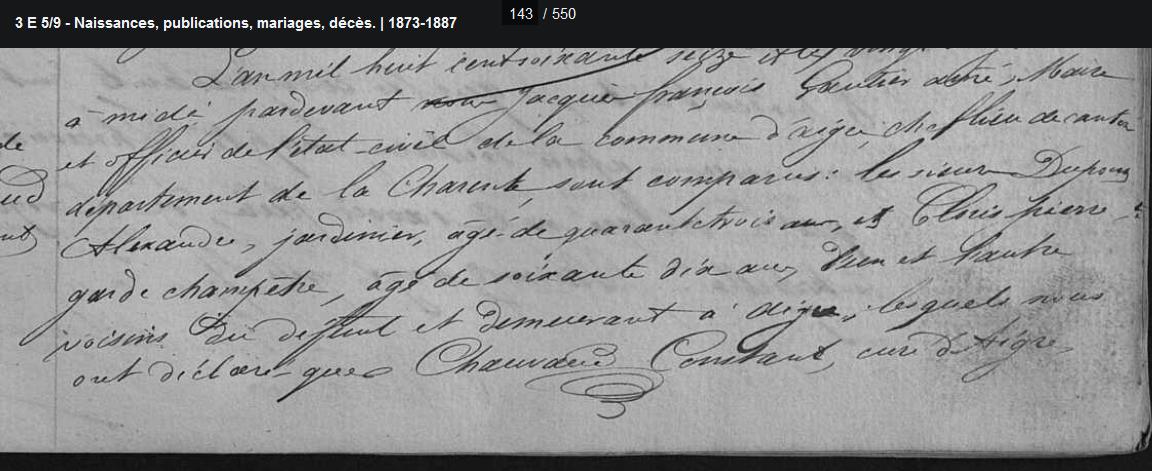 3 E 5/9 - Naissances, publications, mariages, décès. | 1873-1887
143 / 550
L'an mil huit cent soixante seize et le vingt
à midi pardevant nous Jacques françois Gautier aîné, Maire
et officier de l'état-civil de la commune d'aigre chef lieu de canton
département de la Charente, sont comparus: les sieurs
Alexandre, jardinier, âgé de quarante trois ans, et Clocis pierre
garde champêtre, âgé de soixante dix ans, l'un et l'autre
voisins du deffunt et demeurant à Aigre, lesquels nous
ont déclaré que Chauvaud Constant, curé d'Aigre
de
ud